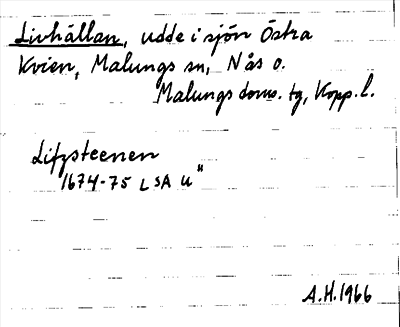 Livhällan, udde i sjön Östra
Kvien, Malungs sn, Nås o.
Malungs doms. tg, Kopp. l.
Lifzsteenen
1674-75 LSA U"
A.H. 1966